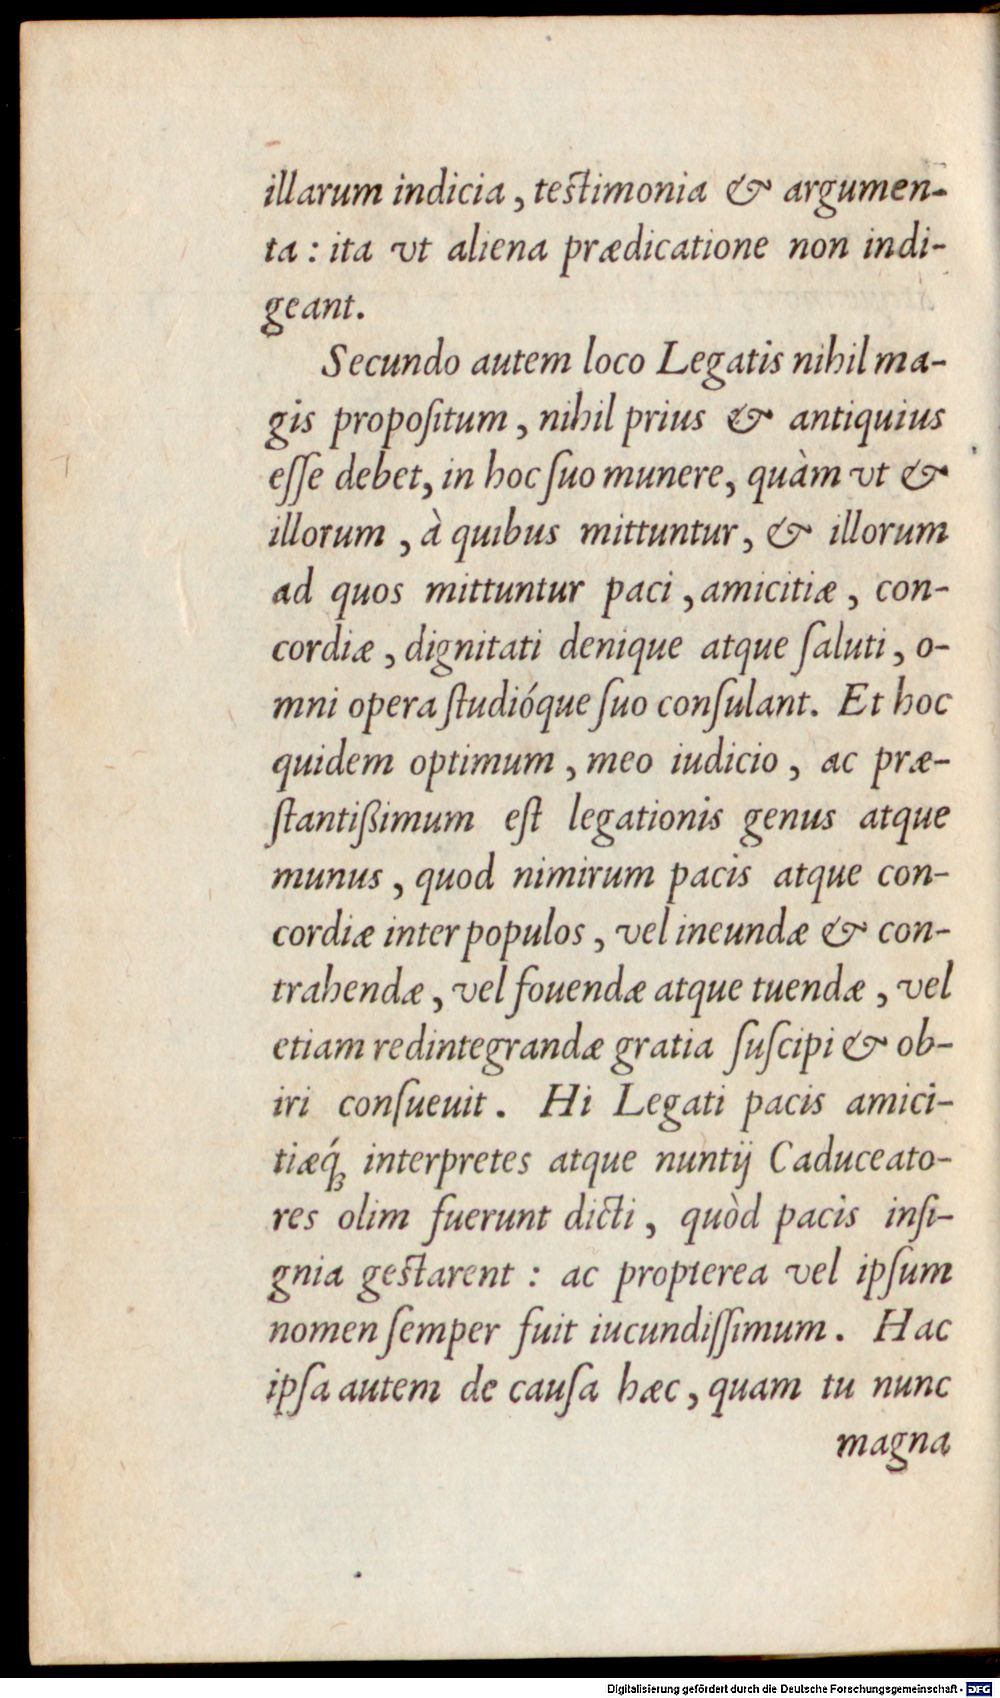 illarum indicia, testimonia & argumen-
ta: ita vt aliena prædicatione non indi-
geant.
Secundo autem loco Legatis nihil ma-
gis propoſitum, nihil prius & antiquius
eſſe debet, in hoc ſuo munere, quàm vt &
illorum, à quibus mittuntur, & illorum
ad quos mittuntur paci, amicitiæ, con-
cordiæ, dignitati denique atque ſaluti, o-
mni opera ſtudióque ſuo conſulant. Et hoc
quidem optimum, meo iudicio, ac præ-
ſtantißimum eſt legationis genus atque
munus, quod nimirum pacis atque con-
cordiæ inter populos, vel ineundæ & con-
trahendæ, vel fouendæ atque tuendæ, vel
etiam redintegrandæ gratia ſuſcipi & ob-
iri conſueuit. Hi Legati pacis amici-
tiæq́ꝫ interpretes atque nuntij Caduceato-
res olim fuerunt dicti, quòd pacis inſi-
gnia geſtarent: ac propterea vel ipſum
nomen ſemper fuit iucundiſſimum. Hac
ipſa autem de cauſa hæc, quam tu nunc
magna
Digitalisierung gefördert durch die Deutsche Forschungsgemeinschaft - DFG